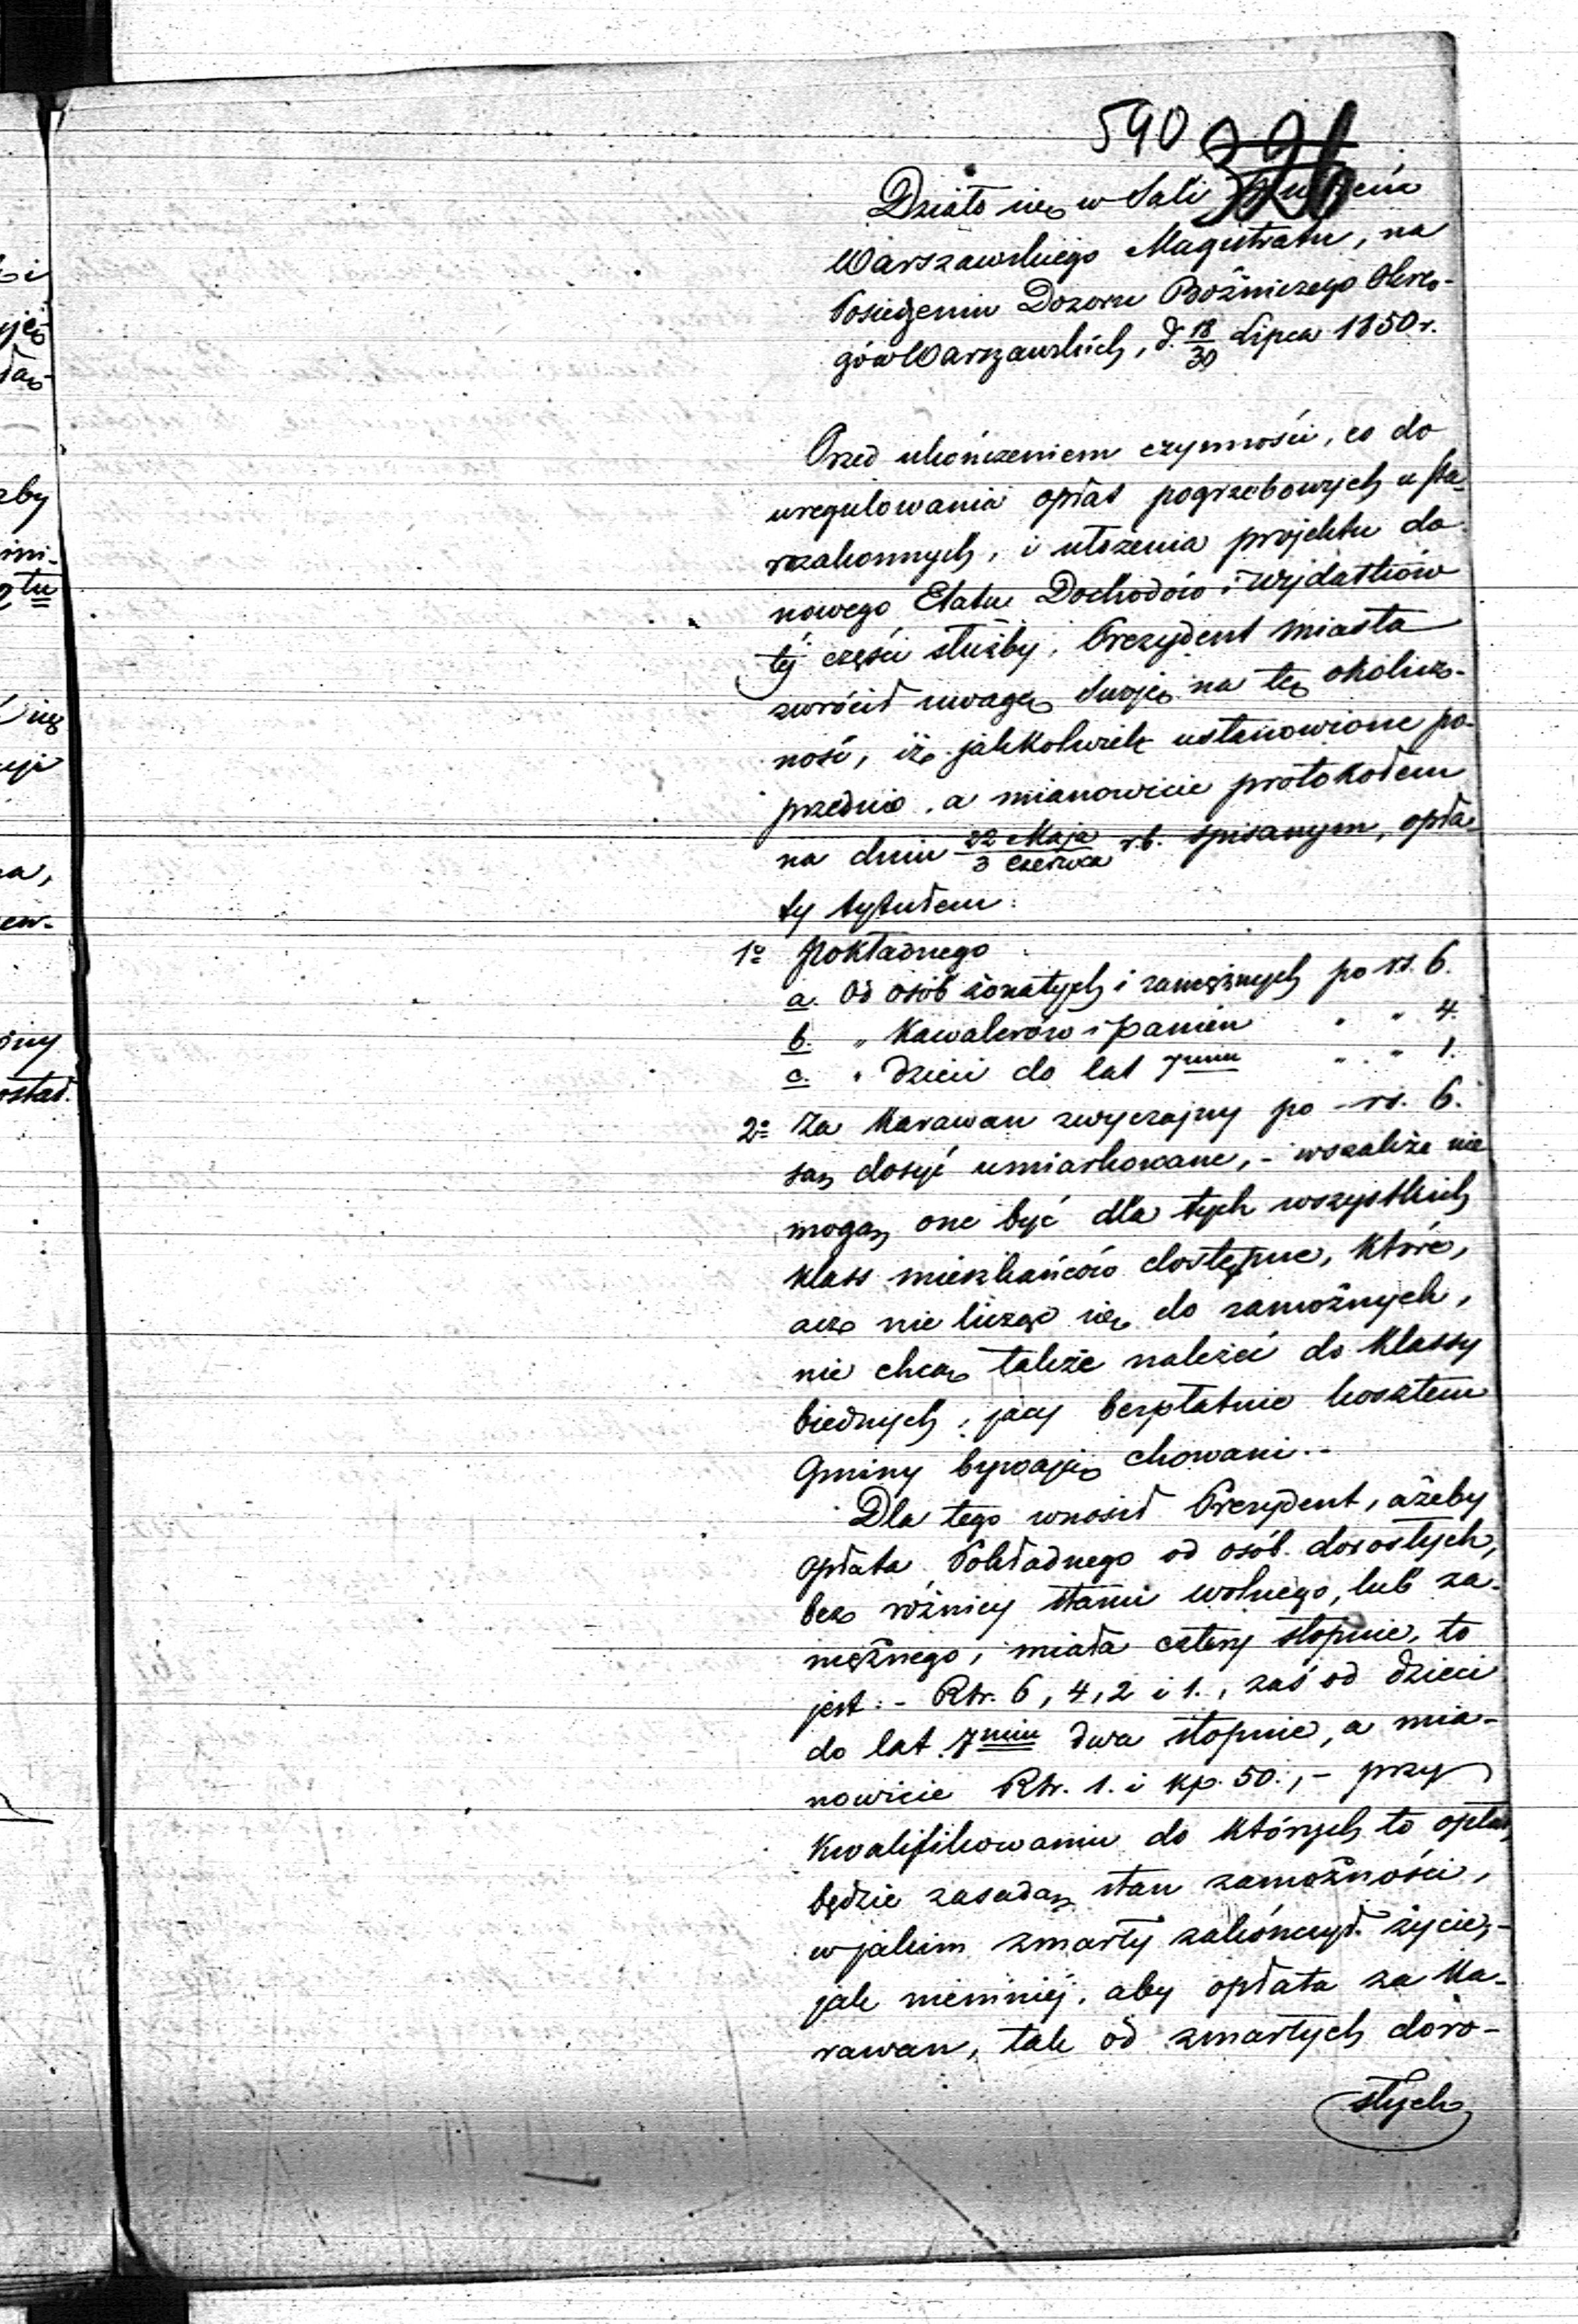 590 326
Działo się w Sali
Warszawskiego Magistratu, na
Posiedzeniu Dozoru Bóżniczego Okrę-
gów Warszawskich, d. 18/30 Lipca 1850 r.
Przed ukończeniem czynności, co do
uregulowania opłat pogrzebowych u sta-
rozakonnych, i ułożenia projektu do
nowego Etatu Dochodów i wydatków
téj części służby, Prezydent miasta
zwrócił uwagę Swoję na tę okolicz-
ność, iż jakkolwiek ustanowione po-
przednio, a mianowicie protokołem
na dniu 22 Maja/3 Czerwca r.b. spisanym, opła-
ty tytułem:
1o pokładnego
a. Od osób żonatych i zamężnych po rs. 6.
b. " Kawalerów i panien " " 4.
c. " dzieci do lat 7miu " " 1.
2o Za Karawan zwyczajny po – rs. 6.
są dosyć umiarkowane, – wszakże nie
mogą one być dla tych wszystkich
klass mieszkańców dostępne, które,
acz nie licząc się do zamożnych,
nie chcą także należéć do Klassy
biednych, jacy bezpłatnie kosztem
Gminy bywają chowani. –
Dla tego wnosił Prezydent, ażeby
opłata Pokładnego od osób dorosłych,
bez różnicy stanu wolnego, lub za-
mężnego, miała cztery stopnie, to
jest: – Rsr. 6, 4, 2 i 1., zaś od dzieci
do lat 7miu dwa stopnie, a mia-
nowicie Rsr. 1. i kp. 50., – przy
Kwalifikowaniu do których to opłat,
będzie zasadą stan zamożności,
w jakim zmarły zakończył życie, –
jak niemniéj, aby opłata za Ka-
rawan, tak od zmarłych doro-
słych